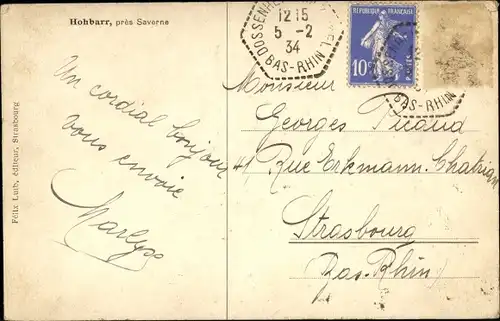 Hohbarr, près Saverne
Félix Luib, éditeur, Strasbourg
12 15
5 -2
34
BAS-RHIN
REPUBLIQUE FRANÇAISE
10c
POSTES
BAS-RHIN
Un cordial bonjour
vous envoie
Marlyse
Monsieur
Georges Picaud
41 Rue Erkmann-Chatrian
Strasbourg
Bas-Rhin)